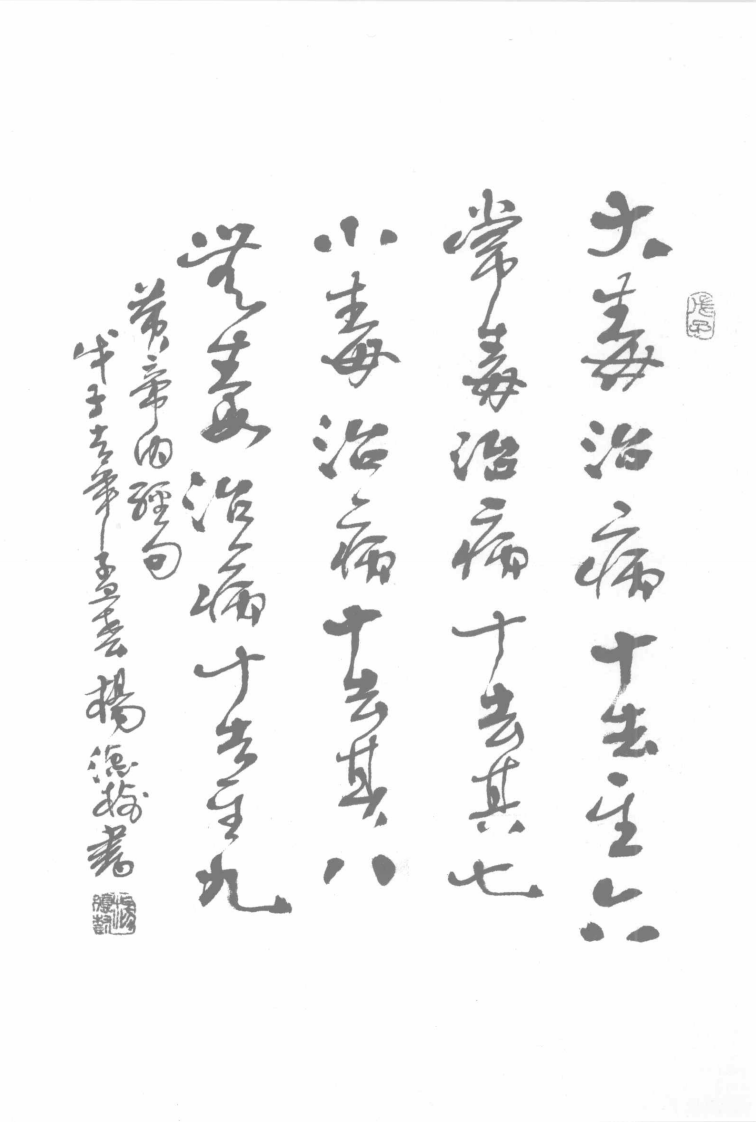 大毒治病十去其六
常毒治病十去其七
小毒治病十去其八
無毒治病十去其九
黄帝内經句
戊子古華孟春楊德 書
戊子